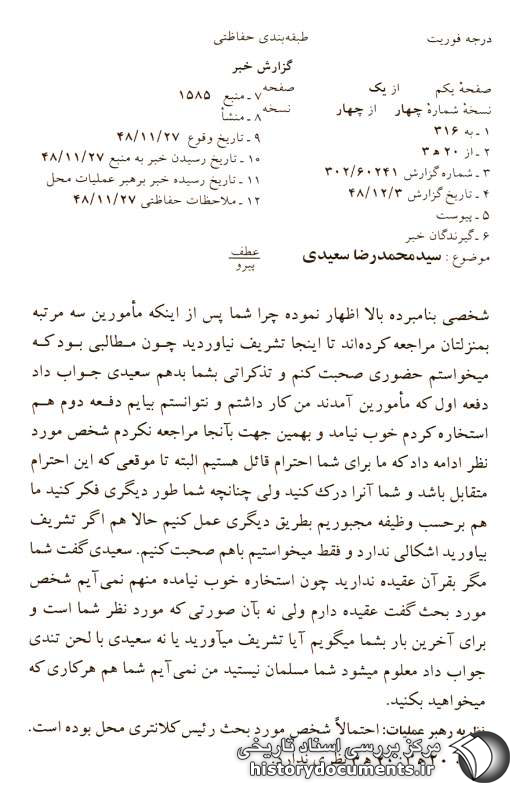 درجه فوریت
طبقه‌بندی حفاظتی
گزارش خبر
صفحهٔ یکم از یک صفحه
نسخهٔ شمارهٔ چهار از چهار نسخه
۱ـ به ۳۱۶
۲ـ از ۲۰ ه‍ ۳
۳ـ شماره گزارش ۳۰۲/۶۰۲۴۱
۴ـ تاریخ گزارش ۴۸/۱۲/۳
۵ـ پیوست
۶ـ گیرندگان خبر
۷ـ منبع ۱۵۸۵
۸ـ منشأ
۹ـ تاریخ وقوع ۴۸/۱۱/۲۷
۱۰ـ تاریخ رسیدن خبر به منبع ۴۸/۱۱/۲۷
۱۱ـ تاریخ رسیده خبر برهبر عملیات محل
۱۲ـ ملاحظات حفاظتی ۴۸/۱۱/۲۷
موضوع : سیدمحمدرضا سعیدی
عطف
پیرو
شخصی بنامبرده بالا اظهار نموده چرا شما پس از اینکه مأمورین سه مرتبه
بمنزلتان مراجعه کرده‌اند تا اینجا تشریف نیاوردید چون مطالبی بود که
میخواستم حضوری صحبت کنم و تذکراتی بشما بدهم سعیدی جواب داد
دفعه اول که مأمورین آمدند من کار داشتم و نتوانستم بیایم دفعه دوم هم
استخاره کردم خوب نیامد و بهمین جهت بآنجا مراجعه نکردم شخص مورد
نظر ادامه داد که ما برای شما احترام قائل هستیم البته تا موقعی که این احترام
متقابل باشد و شما آنرا درک کنید ولی چنانچه شما طور دیگری فکر کنید ما
هم برحسب وظیفه مجبوریم بطریق دیگری عمل کنیم حالا هم اگر تشریف
بیاورید اشکالی ندارد و فقط میخواستیم باهم صحبت کنیم. سعیدی گفت شما
مگر بقرآن عقیده ندارید چون استخاره خوب نیامده منهم نمی‌آیم شخص
مورد بحث گفت عقیده دارم ولی نه بآن صورتی که مورد نظر شما است و
برای آخرین بار بشما میگویم آیا تشریف میآورید یا نه سعیدی با لحن تندی
جواب داد معلوم میشود شما مسلمان نیستید من نمی‌آیم شما هم هرکاری که
میخواهید بکنید.
نظریه رهبر عملیات: احتمالاً شخص مورد بحث رئیس کلانتری محل بوده است.
۲۰ ه‍ ۳
مرکز بررسی اسناد تاریخی
historydocuments.ir